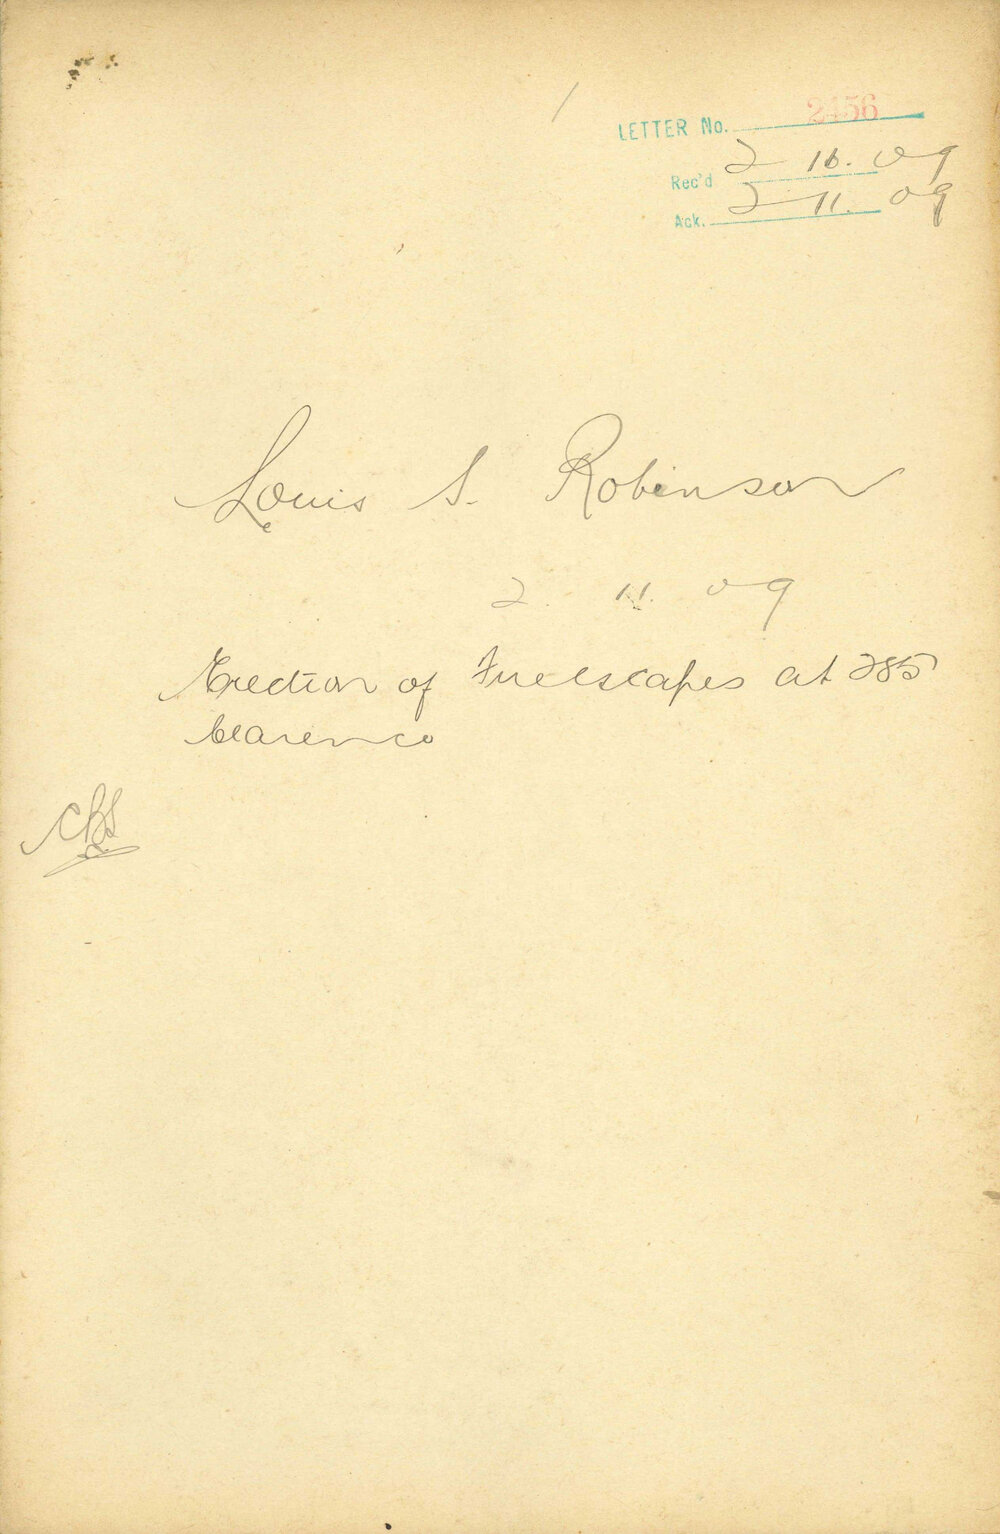 LETTER No. 2456
Rec'd 2 10. 09
Ack. 2 11. 09
Louis S. Robinson
2. 11. 09
Erection of Fireescapes at 285
Clarence